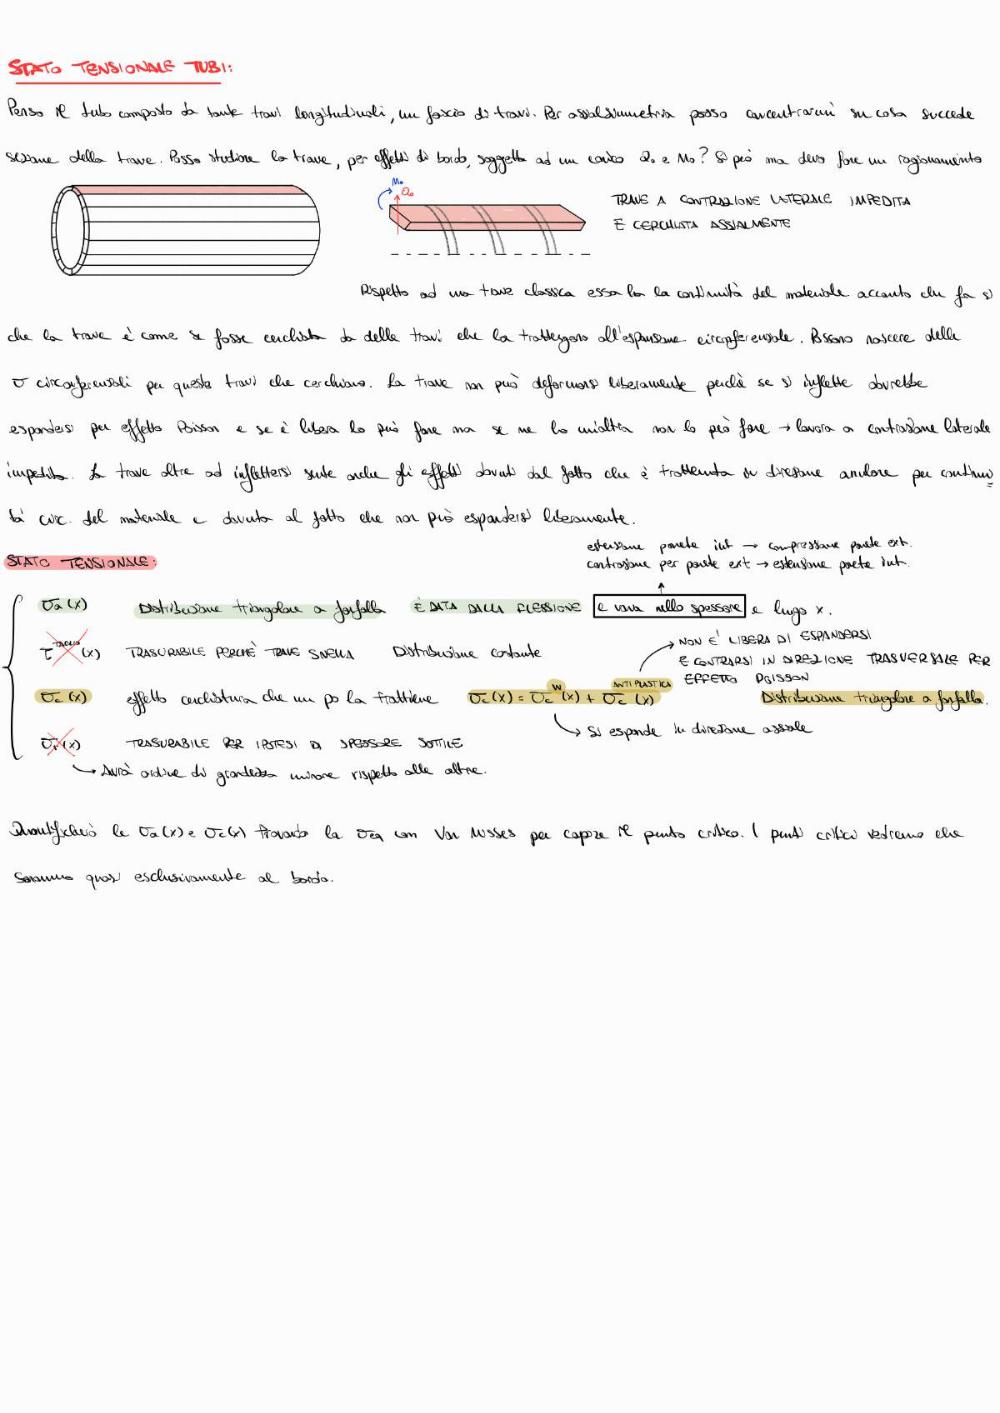 STATO TENSIONALE TUBI:
Penso il tubo composto da tante travi longitudinali, un fascio di travi. Per assialsimmetria posso concentrarmi su cosa succede
sezione della trave. Posso studiare la trave, per effetti di bordo, soggetta ad un carico Q₀ e M₀? Si può ma devo fare un ragionamento
M₀ Q₀
TRAVE A CONTRAZIONE LATERALE IMPEDITA
E CERCHIATA ASSIALMENTE
Rispetto ad una trave classica essa ha la continuità del materiale accanto che fa sì
che la trave è come se fosse cerchiata da delle travi che la trattengono all'espansione circonferenziale. Possono nascere delle
σ circonferenziali per queste travi che cerchiano. La trave non può deformarsi liberamente perchè se si inflette dovrebbe
espandersi per effetto Poisson e se è libera lo può fare ma se ne ho un'altra non lo può fare → lavora a contrazione laterale
impedita. La trave oltre ad inflettersi sente anche gli effetti dovuti dal fatto che è trattenuta in direzione anulare per continui
tà circ. del materiale e dovuta al fatto che non può espandersi liberamente.
estensione parete int → compressione parete ext.
contrazione per parete ext → estensione parete int.
STATO TENSIONALE:
σa(x) Distribuzione triangolare a farfalla È DATA DALLA FLESSIONE e varia nello spessore e lungo x.
τ^TAGLIO(x) TRASCURABILE PERCHÈ TRAVE SNELLA Distribuzione costante
NON E' LIBERA DI ESPANDERSI
E CONTRARSI IN DIREZIONE TRASVERSALE PER
EFFETTO POISSON
σc(x) effetto cerchiatura che un po la trattiene σc(x) = σc^W(x) + σc^ANTIPLASTICA(x) Distribuzione triangolare a farfalla.
Si espande in direzione assiale
σr(x) TRASCURABILE PER IPOTESI DI SPESSORE SOTTILE
Avrà ordine di grandezza minore rispetto alle altre.
Quantificherò le σa(x) e σc(x) trovando la σeq con Von Misses per capire il punto critico. I punti critici vedremo che
saranno quasi esclusivamente al bordo.